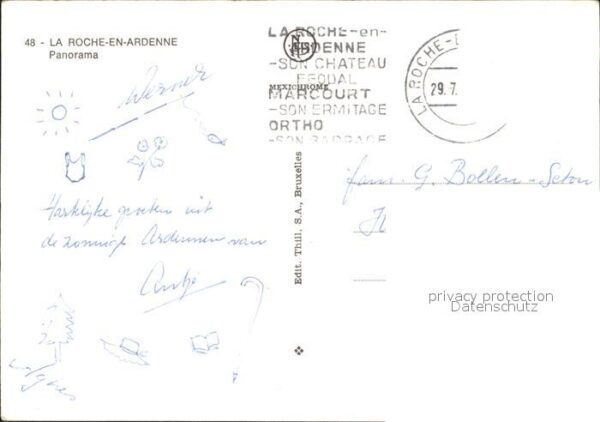 48 - LA ROCHE-EN-ARDENNE
Panorama
LA ROCHE-en-
ARDENNE
-SON CHATEAU
FEODAL
MEXICHROME
MARCOURT
-SON ERMITAGE
ORTHO
-SON BARRAGE
LA ROCHE-
29.7.
Werner
Hartelijke groeten uit
de zonnige Ardennen van
Antje
Edit. Thill, S.A., Bruxelles
Fam. G. Bollen-Seton
privacy protection
Datenschutz